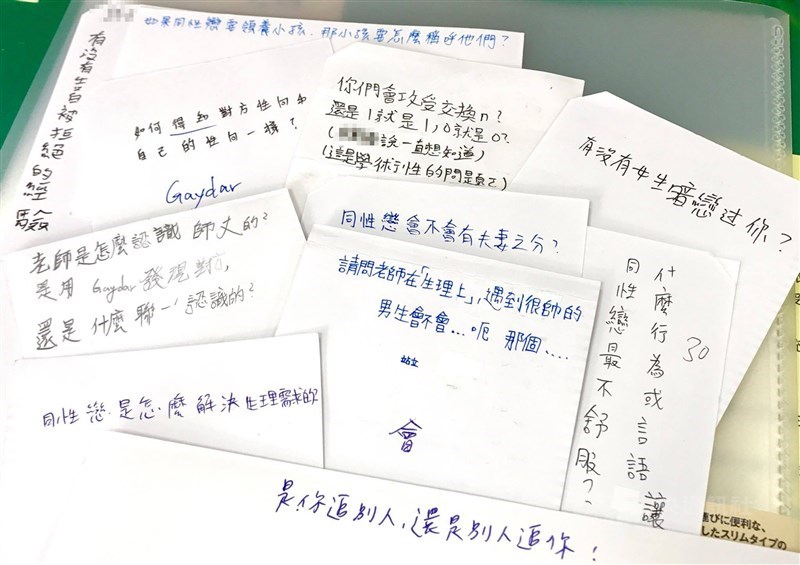 如果同性戀要領養小孩,那小孩要怎麼稱呼他們?
有沒有告白被拒絕的經驗
如何得知對方性向和
自己的性向一樣?
Gaydar
你們會攻受交換n?
還是1就是1,0就是0?
(談一直想知道)
(這是學術性的問題ㄛ)
有沒有女生暗戀过你?
老師是怎麼認識 師丈的?
是用 Gaydar 發現對方,
還是 什麼 聯一 認識的?
同性戀會不會有夫妻之分?
請問老師在「生理上」,遇到很帥的
男生會不會...呃 那個....
站立
會
30
什麼行為或言語讓
同性戀最不舒服?
同性戀是怎麼解決生理需求的
是你追別人,還是別人追你!
びに便利な、
したスリムタイプの